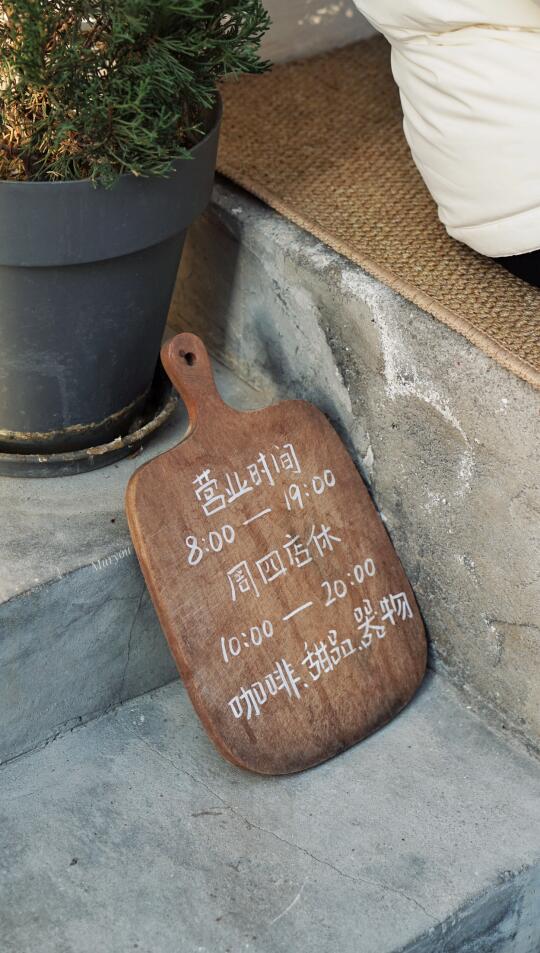 营业时间
8:00 — 19:00
周四店休
10:00 — 20:00
咖啡.甜品.器物